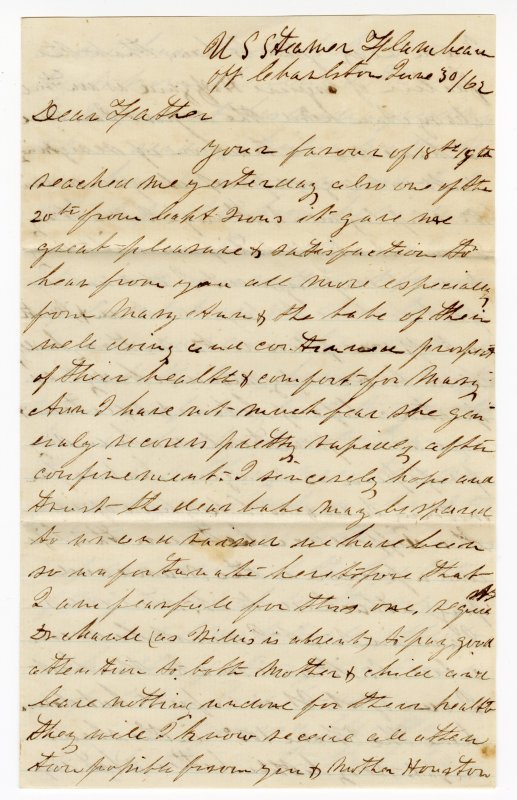 U S Steamer Flambeau
off Charleston June 30/62
Dear Father
Your favour of 18th 19th
reached me yesterday also one of the
20th from Capt it gave me
great pleasure & satisfaction to
hear from you all more especially
from Mary Ann & the babe of their
well doing and continued prospect
of their health & comfort for Mary
Ann I have not much fear she gen
eraly recovers pretty rapidly after
confinement. I sincerely hope and
trust the dear babe may be spared
to us and raised we have been
so unfortunate heretofore that
I am fearfull for this one, request
Dr (as Willis is absent) to pay good
attention to both Mother & child and
leave nothing undone for their health
they will I know receive all atten
tion possible from you & Mother Houston